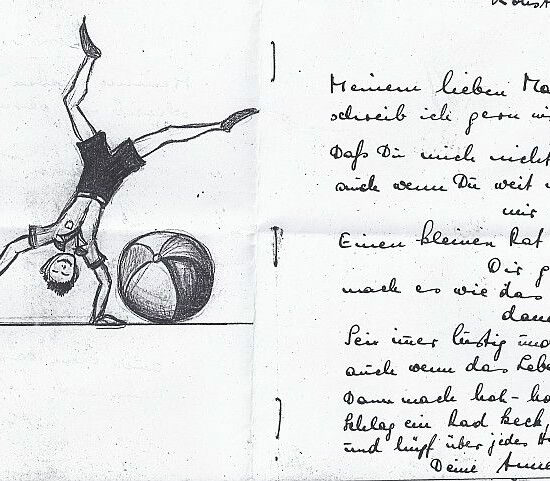 Meinem lieben
schreib ich gern
Daß Du mich nicht
auch wenn Du weit
mir
Einen kleinen Rat
Dir g
mach es wie das
dann
Sei imer lustig und
auch wenn das Lebe
Dann mach hoh-ho
Schlag ein Rad keck,
und hüpf über jedes
Deine Anne